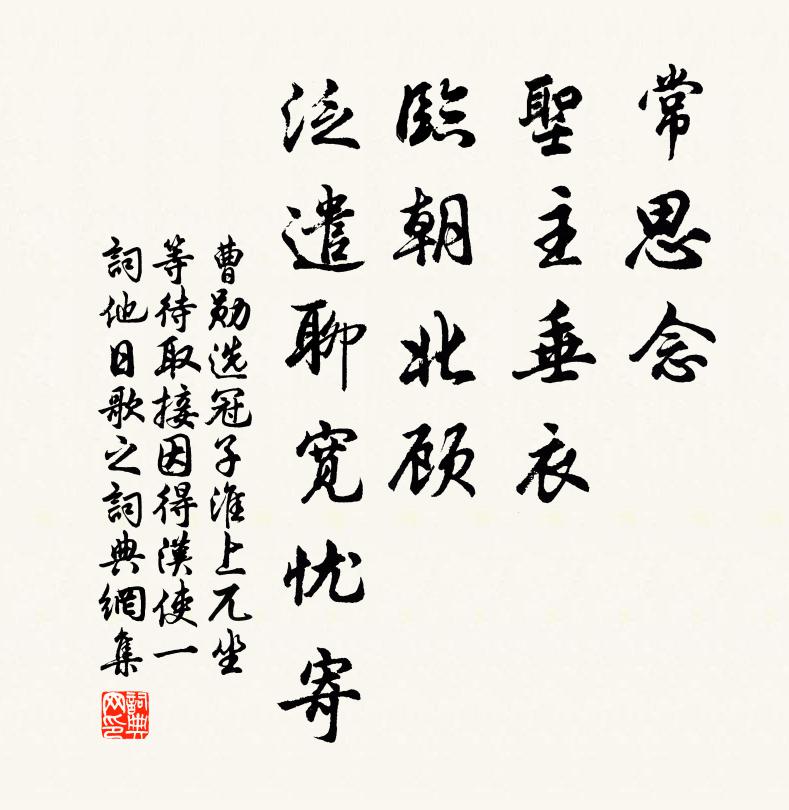 常思念
聖主垂衣
臨朝北顾
泛遣聊寛忧寄
曹勋选冠子淮上兀坐
等待取接因得漢使一
詞他日歌之詞典網集
詞典
网印